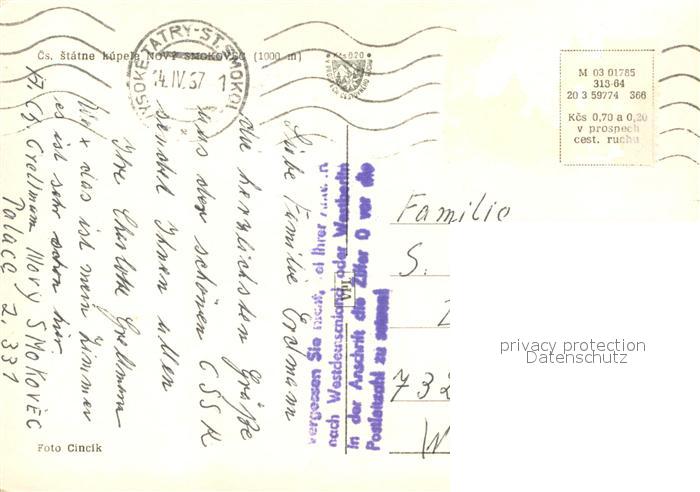 Čs. štátne kúpele NOVÝ SMOKOVEC (1000 m)
VYSOKÉ TATRY-ST. SMOKOVEC
14.IV.67
1
M 03 01785
313-64
20 3 59774 366
Kčs 0,70 a 0,20
v prospech
cest. ruchu
Liebe Familie Erdmann
die herzlichsten Grüße
aus der schönen ČSSR
sendet Ihnen allen
Ihre Charlotte Grellmann
x das ist mein Zimmer
es ist sehr schön hier.
Grellmann Nový SMOKOVEC
Palace Z. 331
Vergessen Sie nicht, bei Ihrer
nach Westdeutschland oder Westberlin
in der Anschrift die Ziffer 0 vor die
Postleitzahl zu setzen!
Familie
S.
732
W
privacy protection
Datenschutz
Foto Cincík